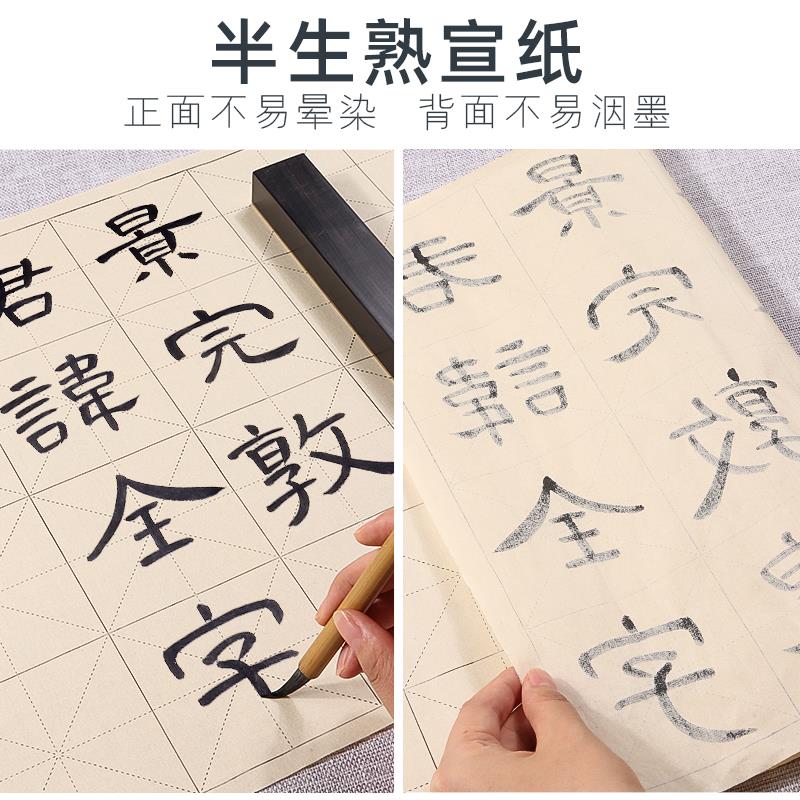 半生熟宣纸
正面不易晕染 背面不易洇墨
君諱全字
景完敦
君諱全字
景完敦